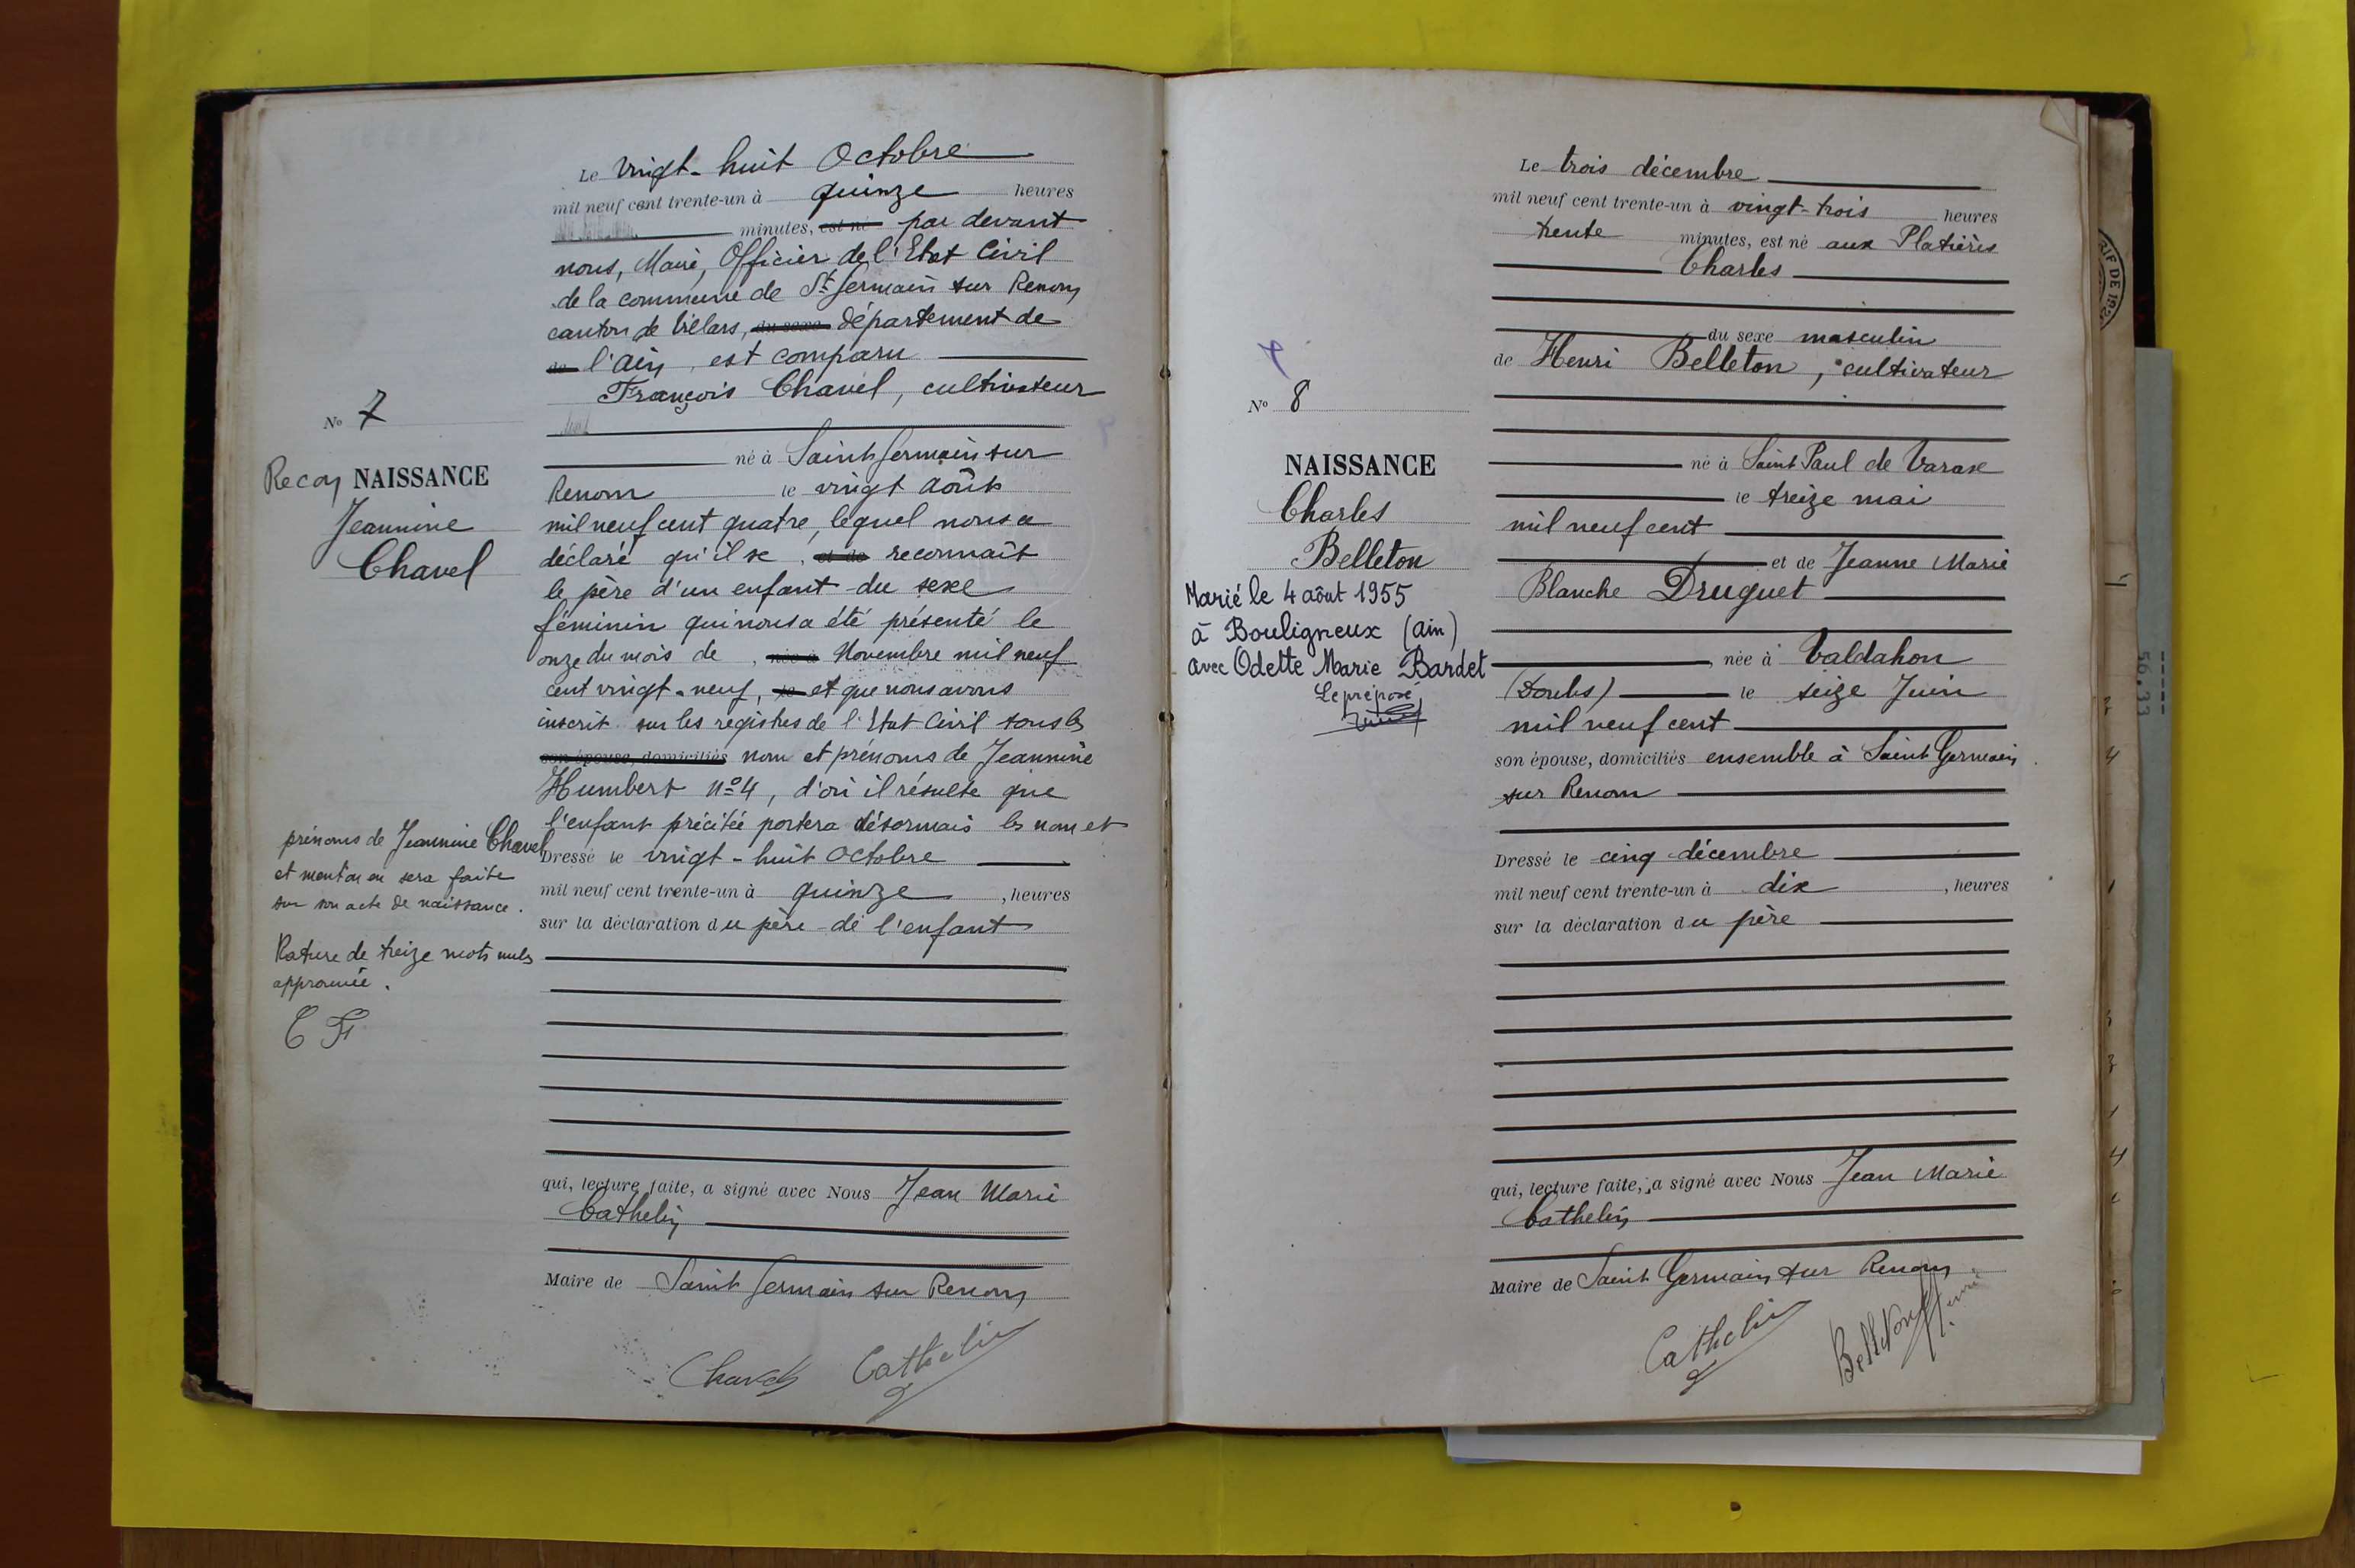 Le vingt-huit Octobre
mil neuf cent trente-un à quinze heures
minutes, est né par devant
nous, Maire, Officier de l'Etat Civil
de la commune de St Germain sur Renom
canton de Villars, du sexe département de
de l'Ain, est comparu
François Chavel, cultivateur
né à Saint Germain sur
Renom le vingt Août
mil neuf cent quatre, lequel nous a
déclaré qu'il se et de reconnaît
le père d'un enfant du sexe
féminin qui nous a été présenté le
onze du mois de , née à Novembre mil neuf
cent vingt-neuf, le et que nous avons
inscrit sur les registres de l'Etat Civil sous les
son épouse, domiciliés nom et prénoms de Jeannine
Humbert n° 4, d'où il résulte que
l'enfant précitée portera désormais les nom et
Dressé le vingt-huit Octobre
mil neuf cent trente-un à quinze , heures
sur la déclaration du père de l'enfant
qui, lecture faite, a signé avec Nous Jean Marie
Cathelin
Maire de Saint Germain sur Renom
Chavel Cathelin
N° 7
Recon NAISSANCE
Jeannine
Chavel
prénoms de Jeannine Chavel
et mention en sera faite
sur son acte de naissance.
Rature de treize mots nuls
approuvée.
C F
Le trois décembre
mil neuf cent trente-un à vingt-trois heures
trente minutes, est né aux Platières
Charles
du sexe masculin
de Henri Belleton, cultivateur
né à Saint Paul de Varax
le treize mai
mil neuf cent
et de Jeanne Marie
Blanche Druguet
née à Valdahon
(Doubs) le seize Juin
mil neuf cent
son épouse, domiciliés ensemble à Saint Germain
sur Renom
Dressé le cinq décembre
mil neuf cent trente-un à dix , heures
sur la déclaration du père
qui, lecture faite, a signé avec Nous Jean Marie
Cathelin
Maire de Saint Germain sur Renom
Cathelin Belleton Henri
N° 8
NAISSANCE
Charles
Belleton
Marié le 4 août 1955
à Bouligneux (Ain)
avec Odette Marie Bardet
Le préposé